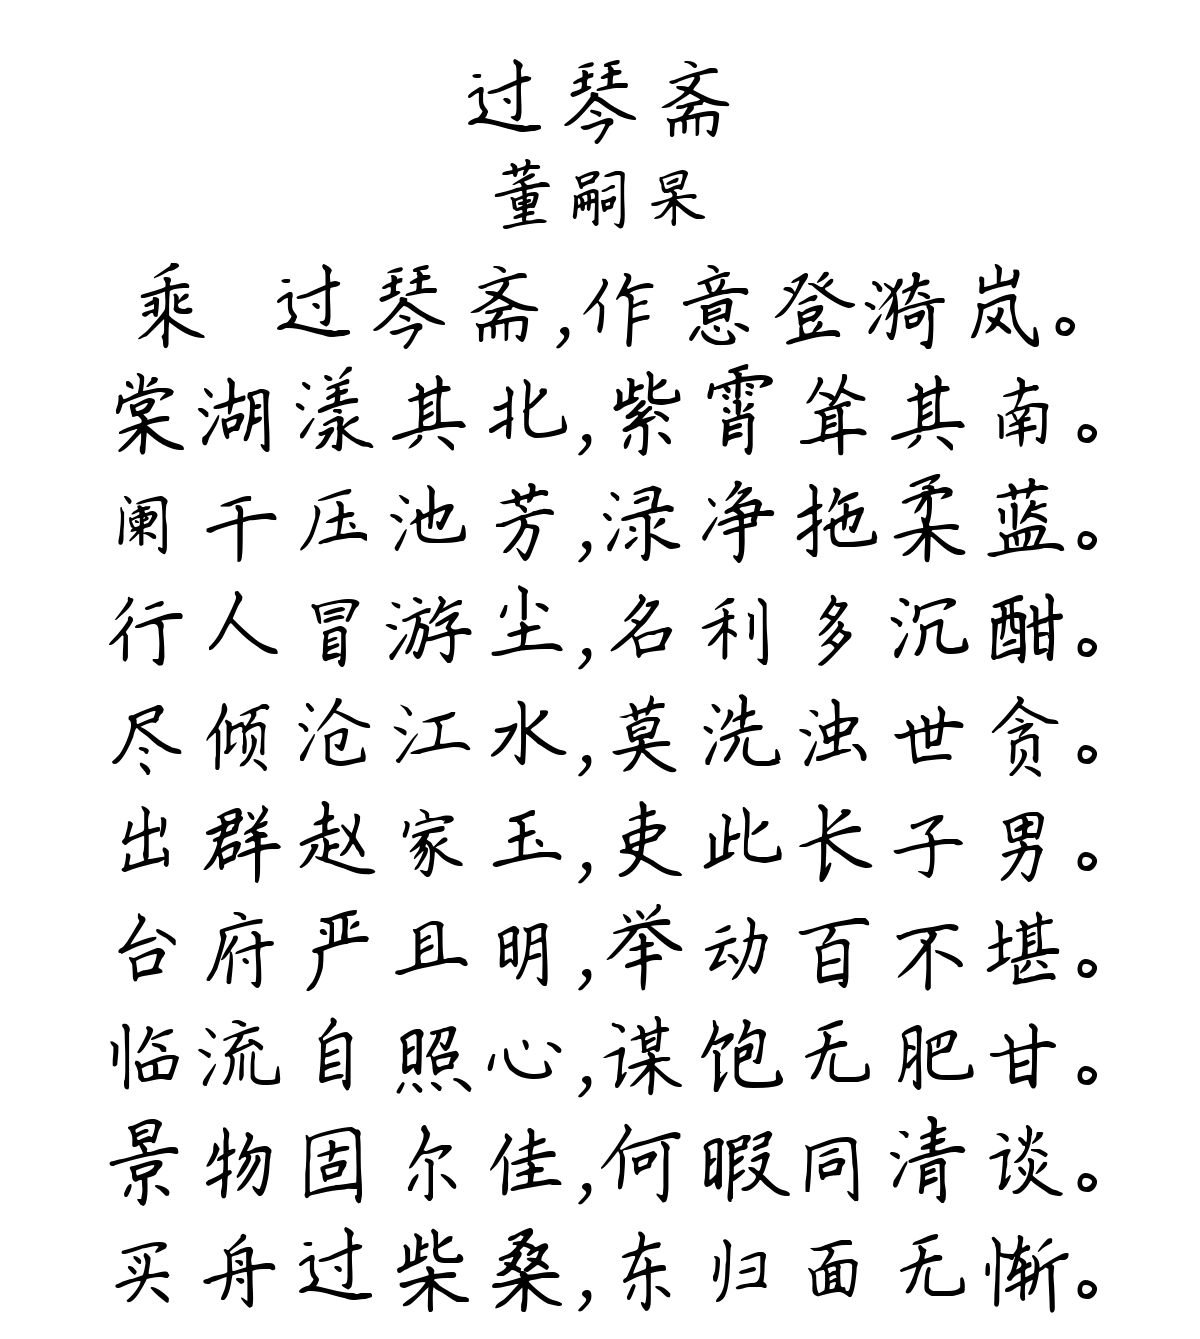 过琴斋
董嗣杲
乘 过琴斋,作意登漪岚。
棠湖漾其北,紫霄耸其南。
阑干压池芳,渌净拖柔蓝。
行人冒游尘,名利多沉酣。
尽倾沧江水,莫洗浊世贪。
出群赵家玉,吏此长子男。
台府严且明,举动百不堪。
临流自照心,谋饱无肥甘。
景物固尔佳,何暇同清谈。
买舟过柴桑,东归面无惭。